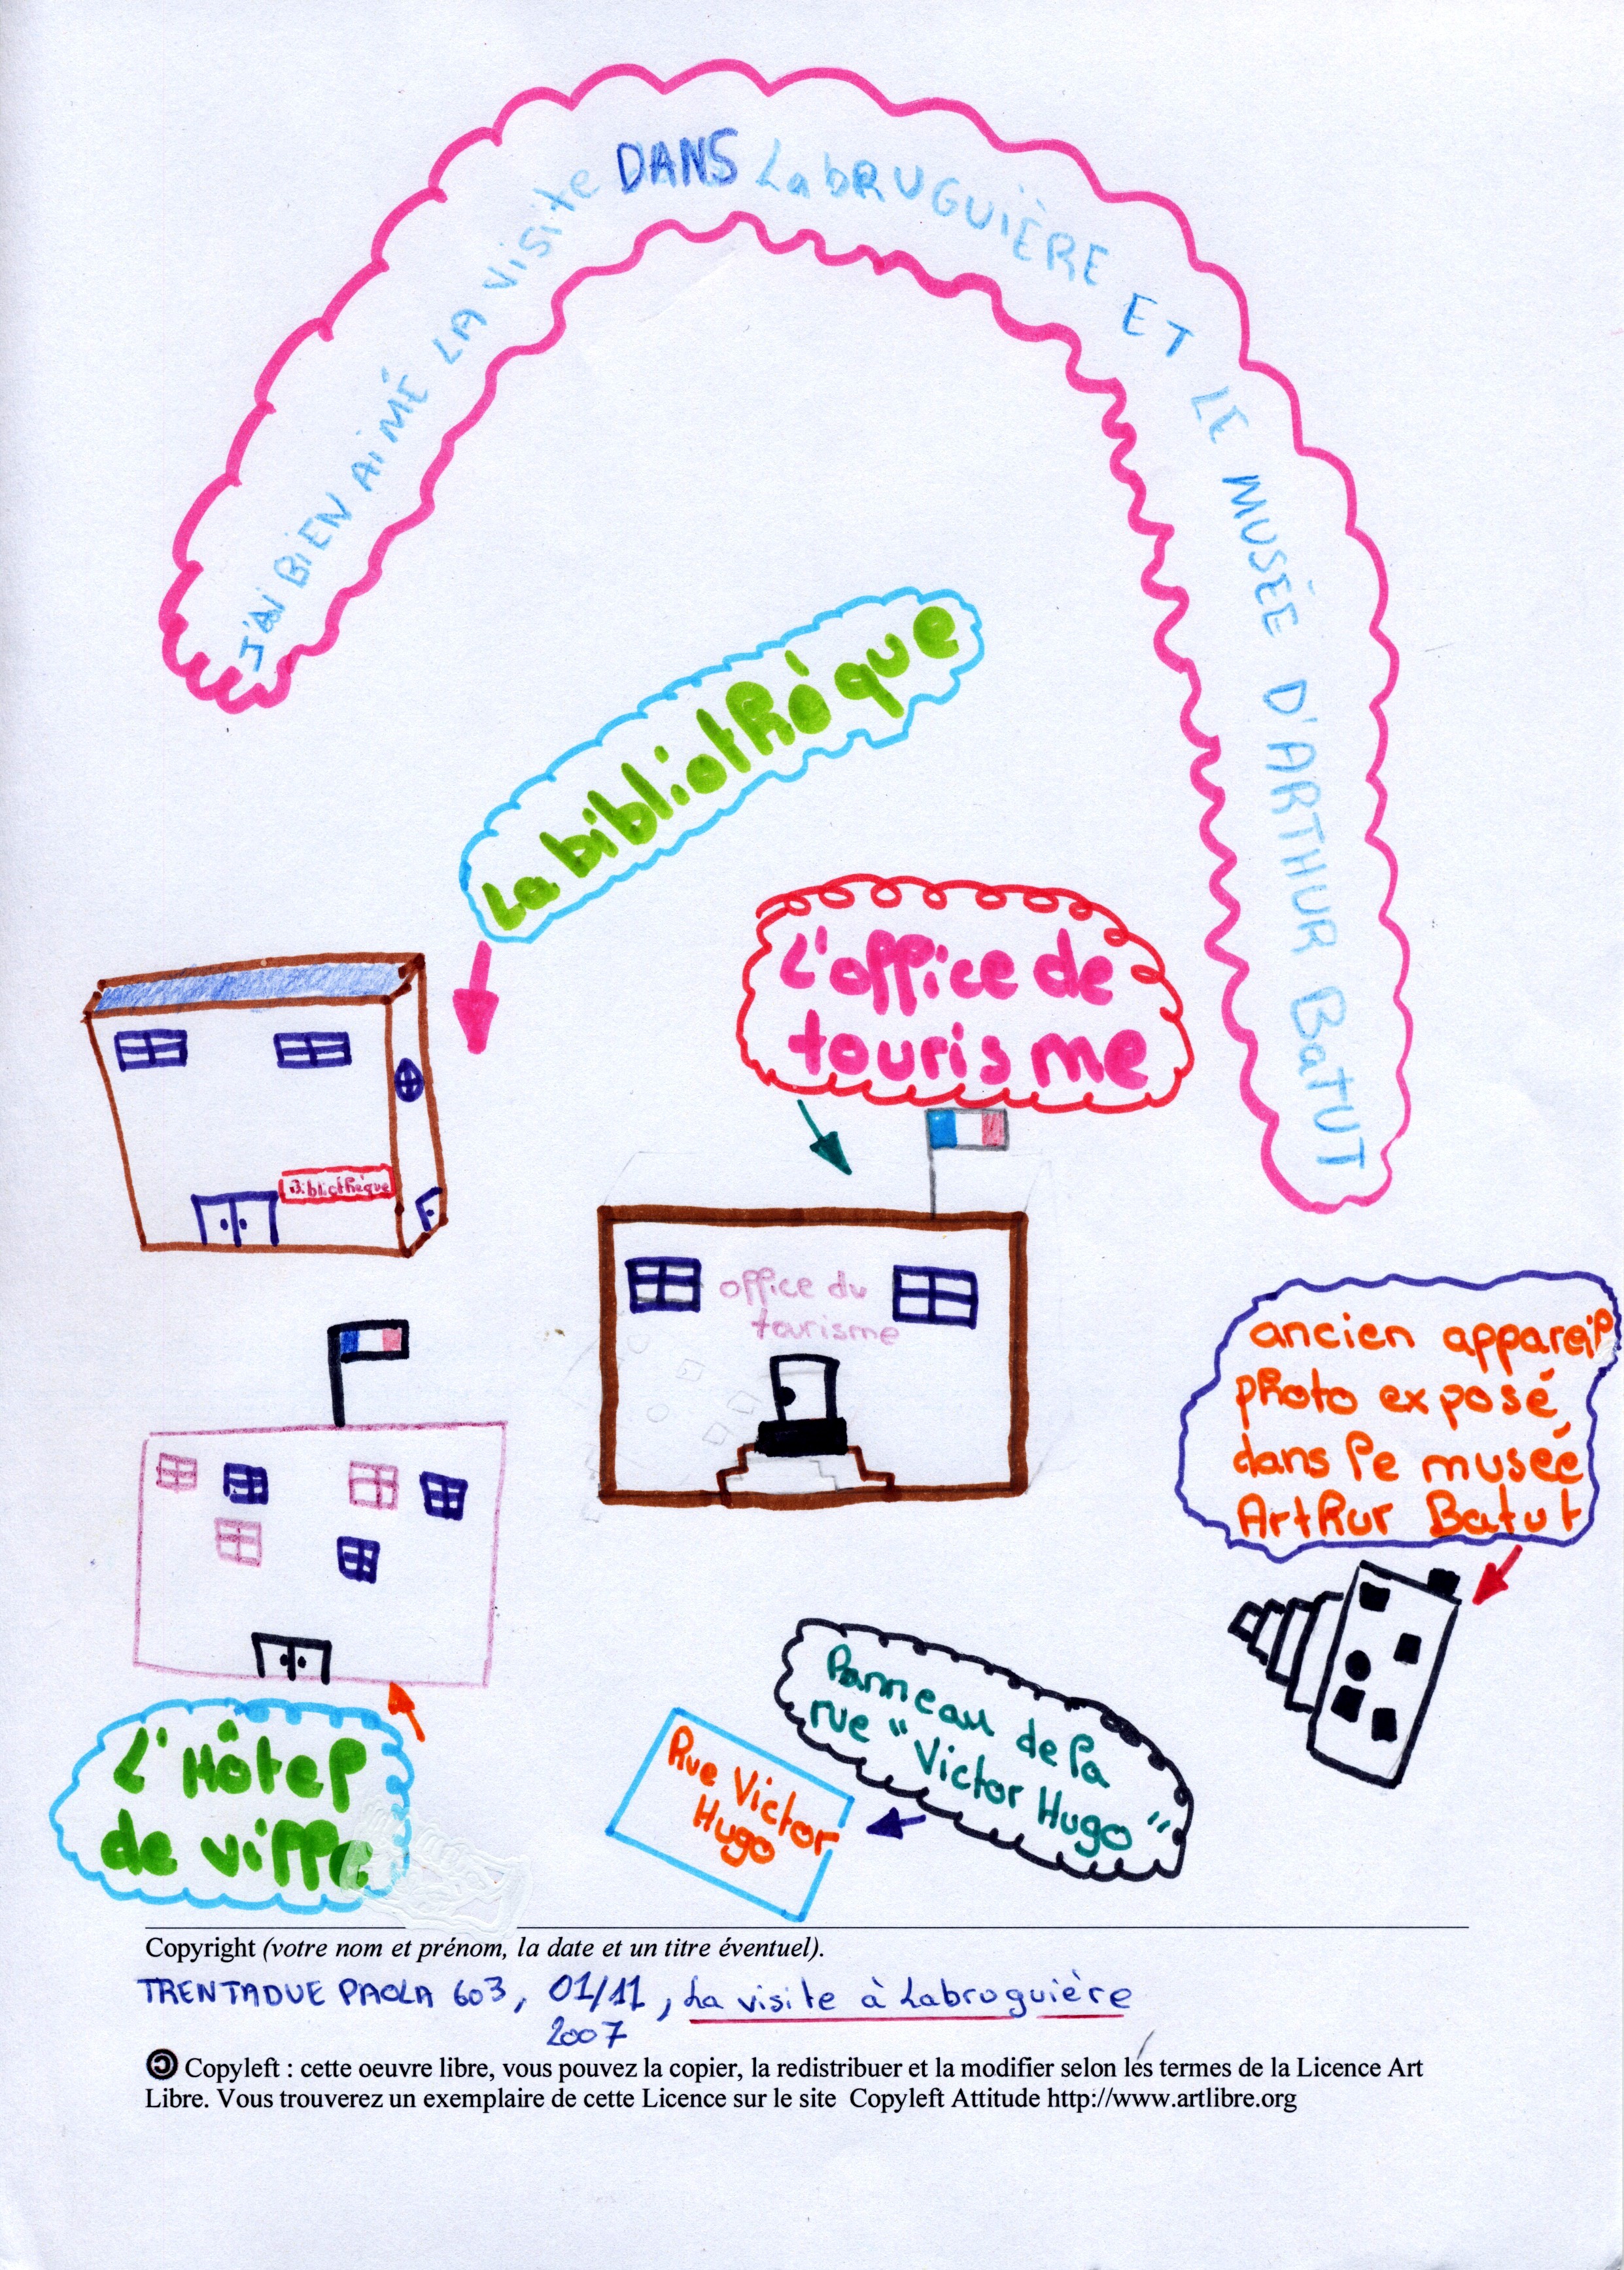 J'AI BIEN AIMÉ LA VISITE DANS LABRUGUIÈRE ET LE MUSÉE D'ARTHUR BATUT
La bibliothéque
L'office de
tourisme
Bibliothèque
office du
tourisme
ancien appareil
photo exposé
dans le museé
Arthur Batut
Panneau de la
rue "Victor Hugo"
Rue Victor
Hugo
L'Hôtel
de ville
Copyright (votre nom et prénom, la date et un titre éventuel).
TRENTADUE PAOLA 603, 01/11, La visite à Labruguière
2007
Copyleft : cette oeuvre libre, vous pouvez la copier, la redistribuer et la modifier selon les termes de la Licence Art
Libre. Vous trouverez un exemplaire de cette Licence sur le site Copyleft Attitude http://www.artlibre.org